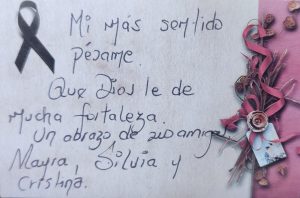 Mi más sentido
pésame.
Que Dios le de
mucha fortaleza.
Un abrazo de sus amigas
Mayra, Silvia y
Cristina.